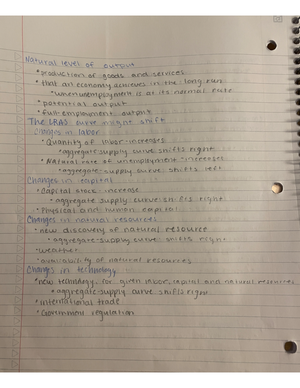 Natural level of output
*production of goods and services
*that an economy achieves in the long run
*when unemployment is at its normal rate
*potential output
*full-employment output
The LRAS curve might shift
Changes in labor
*Quantity of labor increases
*aggregate supply curve shifts right
*Natural rate of unemployment increases
*aggregate supply curve shifts left
Changes in capital
*Capital stock increase
*aggregate supply curve shifts right
*Physical and human capital
Changes in natural resources
*new discovery of natural resource
*aggregate supply curve shifts right
*weather
*availability of natural resources
Changes in technology
*new technology, for given labor, capital and natural resources
*aggregate supply curve shifts right
*international trade
*Government regulation